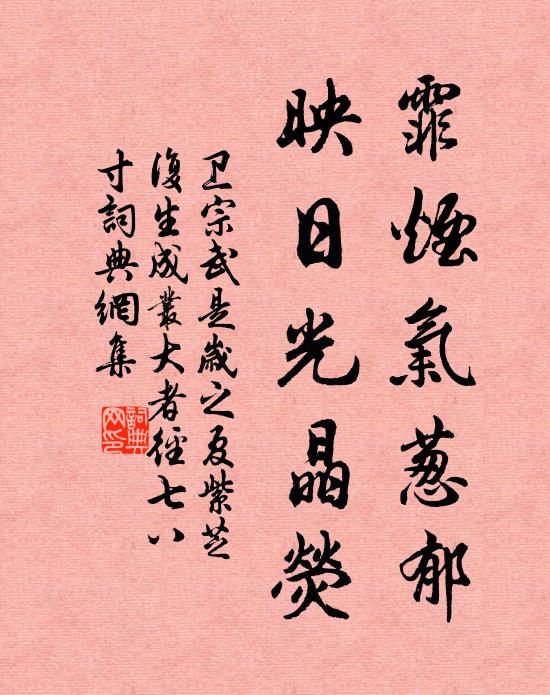 霏煙氣葱郁
映日光晶熒
卫宗武是歲之夏紫芝
復生成叢大者徑七八
寸詞典網集
詞典網印